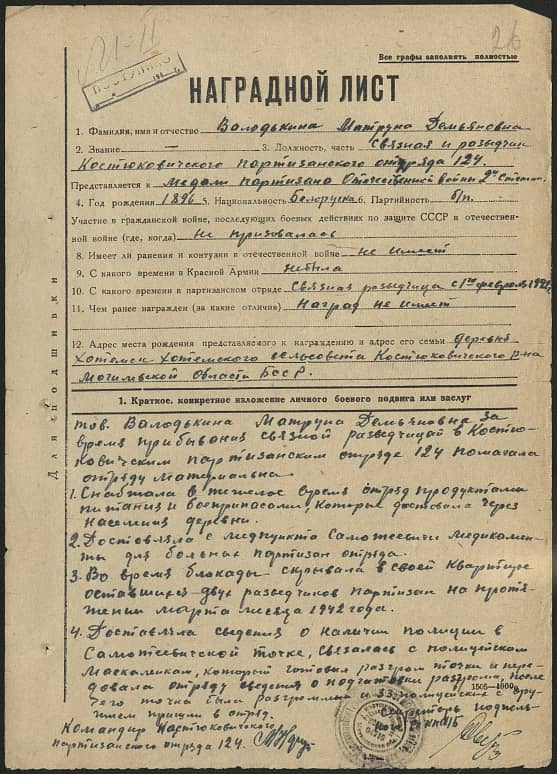 26
Все графы заполнять полностью
НАГРАДНОЙ ЛИСТ
1. Фамилия, имя и отчество Володькина Матруна Демьяновна
2. Звание — 3. Должность, часть Связная и разведчик
Костюковичского партизанского отряда 124.
Представляется к Медали партизана Отечественной войны 2й Степени
4. Год рождения 1896 5. Национальность Белоруска 6. Партийность б/п.
Участие в гражданской войне, последующих боевых действиях по защите СССР и отечествен-
ной войне (где, когда) не призовалась
8. Имеет ли ранения и контузии в отечественной войне не имеет
9. С какого времени в Красной Армии небыла
10. С какого времени в партизанском отряде Связная разведчица с 1го февраля 1942г.
11. Чем ранее награжден (за какие отличия) Наград не имеет
12. Адрес места рождения представляемого к награждению и адрес его семьи деревня
Хотемск Хотемского сельсовета Костюковичского р-на
Могильвской Области БССР.
Для подшивки
1. Краткое, конкретное изложение личного боевого подвига или заслуг
тов. Володькина Матруна Демьяновна за
время прибывания связной разведчицай в Костю-
ковичским партизанским отряде 124 помагала
отряду материальна.
1. Снабжала в тежелое время отряд продуктами
питания и боеприпасами, которые доставала через
населния деревни.
2. Доставляла с медпункта Самотеевичи медикамен-
ты для больных партизан отряда.
3. Во время блокады скрывала в своей квартире
оставшихся двух разведчиков партизан на протя-
жении марта месяца 1942 года.
4. Доставляла сведения о наличии полиции в
Самотеевичской точке, связалась с полицейским
Маскаликам, который готовил разгром точки и пере-
довала отряду сведения о подготовки разгрома, после
чего точка была разгромлина и 33 полицейских с ору-
жием пришли в отряд.
1505—4000
Командир Костюковичского
партизанского отряда 124.
Секретарь подполь